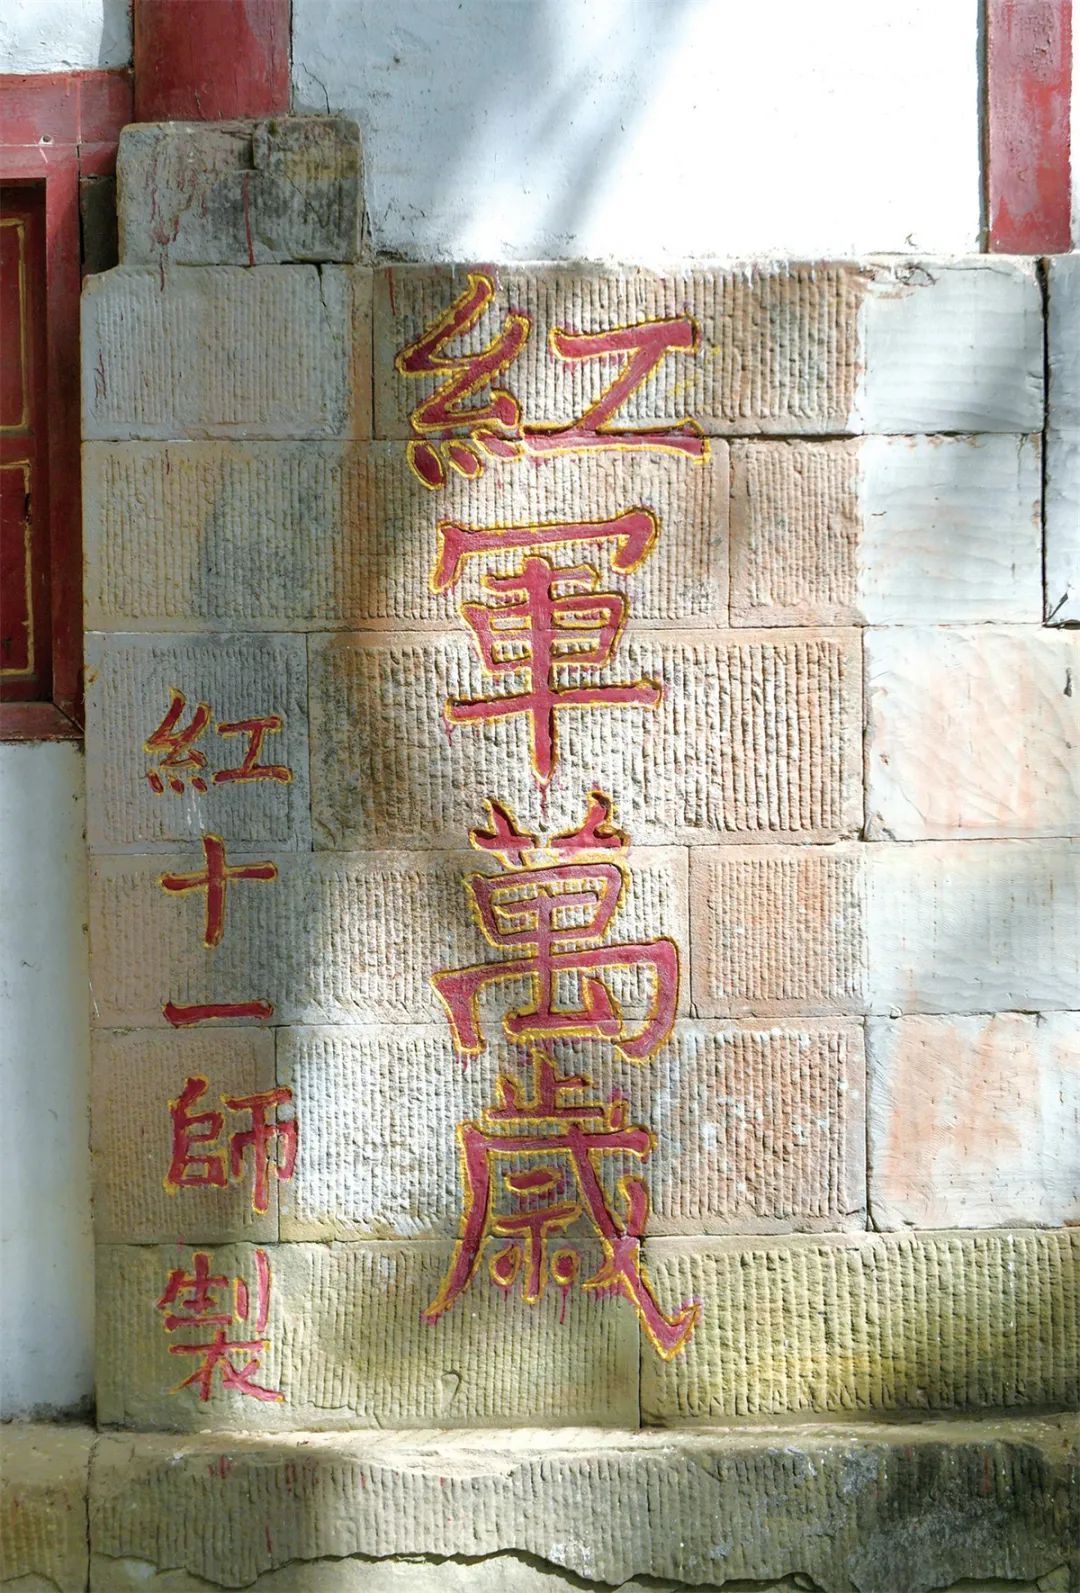 紅軍萬歲
紅十一師製